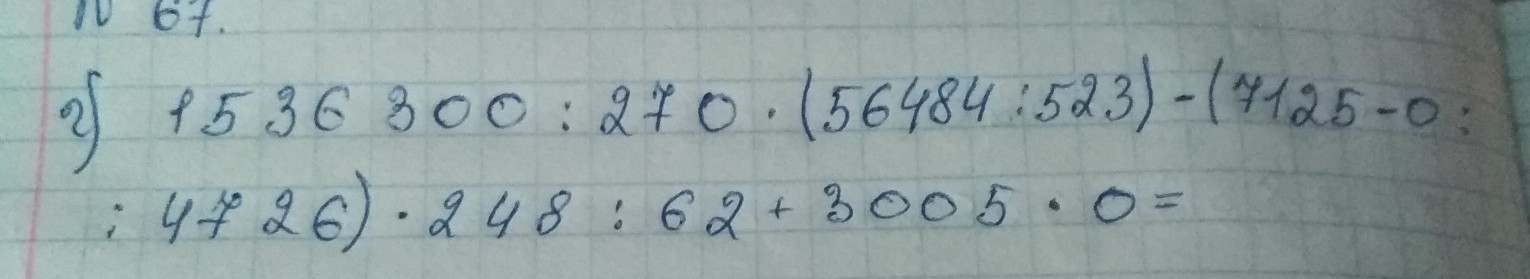 N 67.
г) 1536300 : 270 · (56484 : 523) - (7125 - 0 :
: 4726) · 248 : 62 + 3005 · 0 =